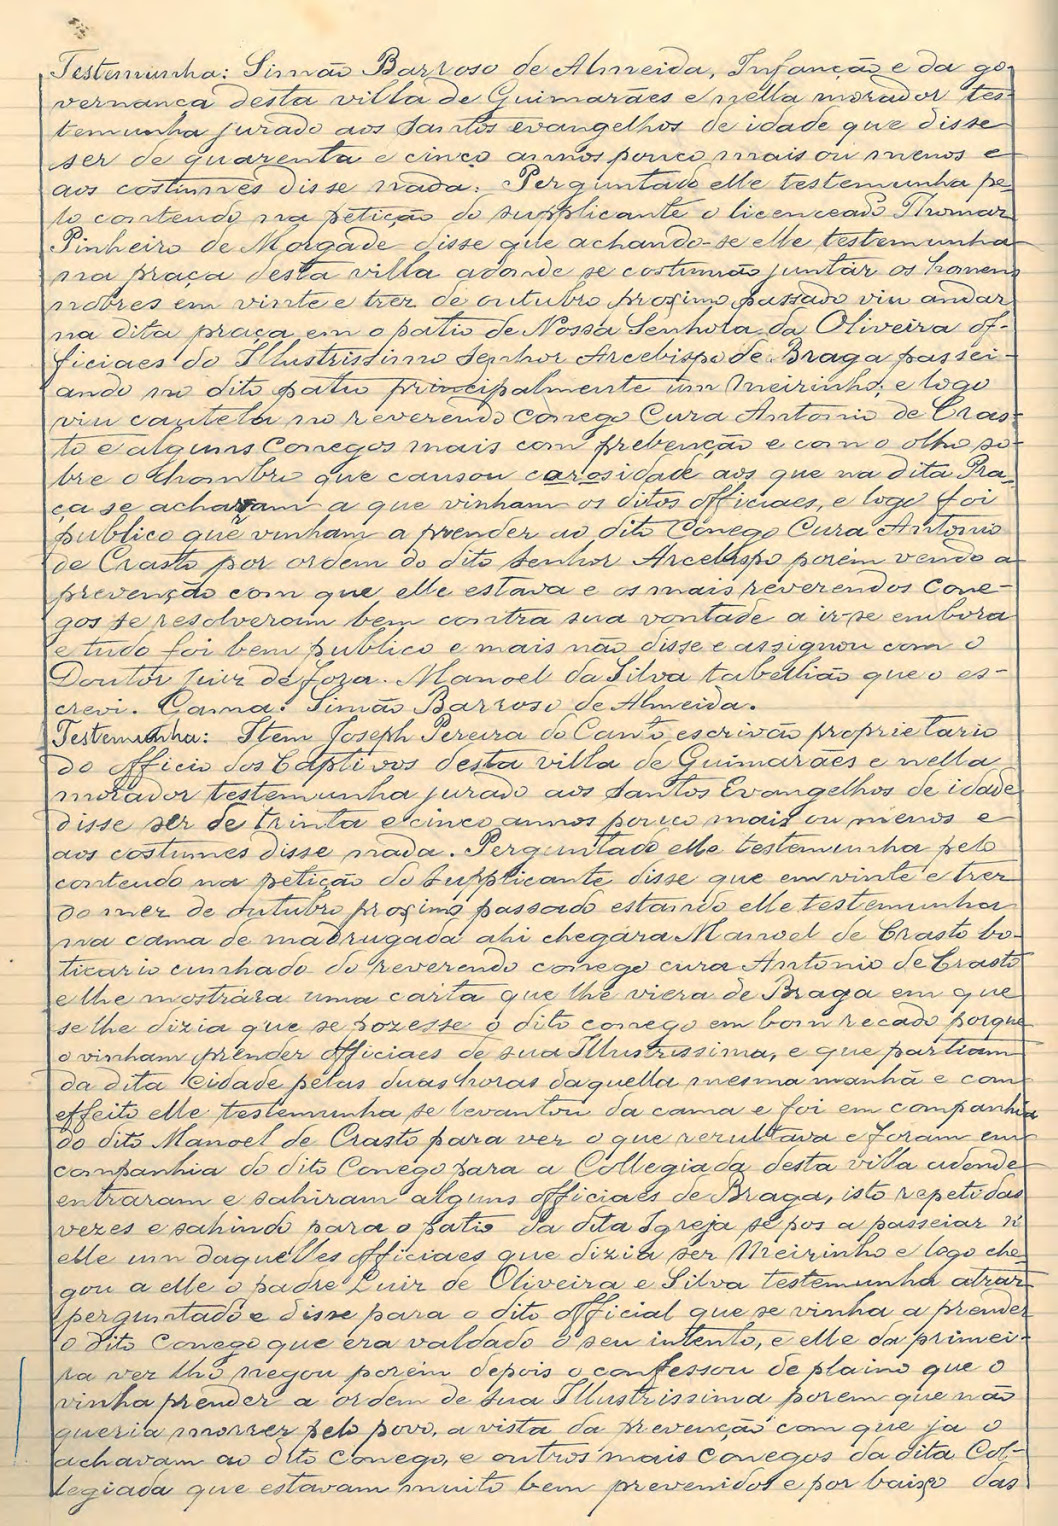 Testemunha: Simão Barroso de Almeida, Infanção e da go-
vernança desta villa de Guimarães e nella morador tes-
temunha jurado aos santos evangelhos de idade que disse
ser de quarenta e cinco annos pouco mais ou menos e
aos costumes disse nada. Perguntado elle testemunha pe-
lo contendo na petição do supplicante o licenceado Thomaz
Pinheiro de Morgade disse que achando-se elle testemunha
na praça desta villa adonde se costumão juntar os homens
nobres em vinte e trez de outubro proximo passado viu andar
na dita praça em o patio de Nossa Senhora da Oliveira of-
ficiaes do Illustrissimo Senhor Arcebispo de Braga passei-
ando no dito patio principalmente um Meirinho; e logo
viu cautela no reverendo conego Cura Antonio de Cras-
to e alguns Conegos mais com prebenção e com o olho so-
bre o hombro que causou carosidade aos que na dita Pra-
ça se acharam a que vinham os ditos officiaes, e logo foi
publico que vinham a prender ao dito Conego Cura Antonio
de Crasto por ordem do dito senhor Arcebispo porém vendo a
prevenção com que elle estava e os mais reverendos Cone-
gos se resolveram bem contra sua vontade a ir-se embora
e tudo foi bem publico e mais não disse e assignou com o
Doutor juiz de fora. Manoel da Silva tabellião que o es-
crevi. Gama: Simão Barroso de Almeida.
Testemunha: Item Joseph Pereira do Canto escrivão proprietario
do officio dos Captivos desta villa de Guimarães e nella
morador testemunha jurado aos santos Evangelhos de idade
disse ser de trinta e cinco annos pouco mais ou menos e
aos costumes disse nada. Perguntado elle testemunha pelo
contendo na petição do Supplicante disse que em vinte e trez
do mez de outubro proximo passado estando elle testemunha
na cama de madrugada ahi chegára Manoel de Crasto bo-
ticario cunhado do reverendo conego cura Antonio de Crasto
e lhe mostrára uma carta que lhe viera de Braga em que
se lhe dizia que se pozesse o dito conego em bom recado porque
o vinham prender officiaes de sua Illustrissima, e que partiam
da dita Cidade pelas duas horas daquella mesma manhã e com
effeito elle testemunha se levantou da cama e foi em companhia
do dito Manoel de Crasto para ver o que rezultava e foram em
companhia do dito Conego para a Collegiada desta villa adonde
entraram e sahiram alguns officiaes de Braga, isto repetidas
vezes e sahindo para o patio da dita Igreja se pos a passeiar n'
elle um daquelles officiaes que dizia ser Meirinho e logo che-
gou a elle o padre Luiz de Oliveira e Silva testemunha atraz
perguntado e disse para o dito official que se vinha a prender
o dito Conego que era valdado o seu intento, e elle da primei-
ra vez lho negou porém depois o confessou de plaino que o
vinha prender a ordem de sua Illustrissima porem que não
queria morrer pelo povo, a vista da prevenção com que ja o
achavam ao dito conego, e outros mais Conegos da dita Col-
legiada que estavam muito bem prevenidos e por baixo das